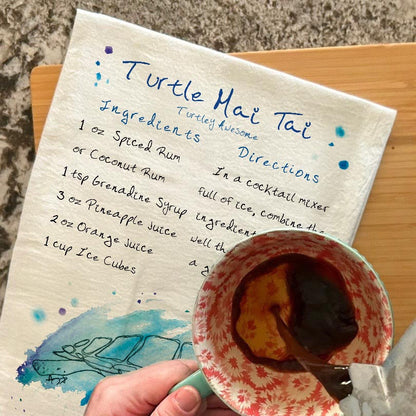 Turtle Mai Tai
Turtley Awesome
Ingredients
1 oz Spiced Rum
or Coconut Rum
1 tsp Grenadine Syrup
3 oz Pineapple Juice
2 oz Orange Juice
1 cup Ice Cubes
Directions
In a cocktail mixer
full of ice, combine the
ingredients
well
a